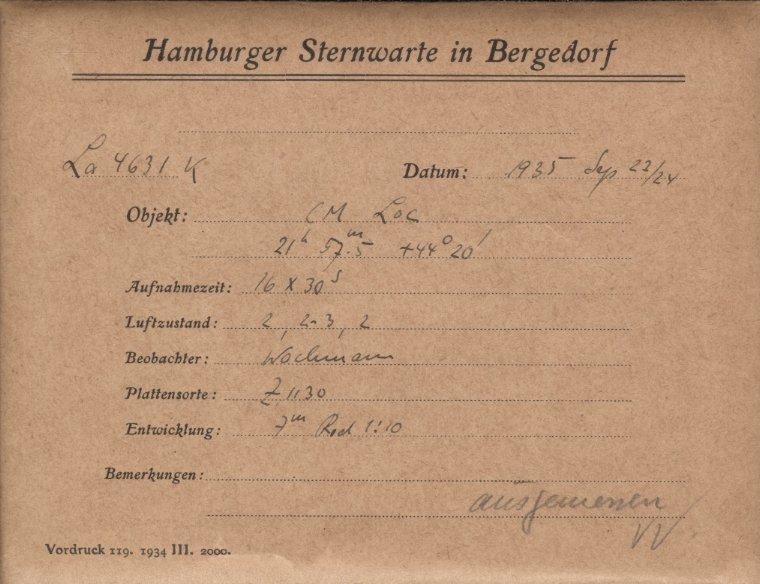 Hamburger Sternwarte in Bergedorf
La 4631 K Datum: 1935 Sep 23/24
Objekt: CM Lac
21ʰ 57.ᵐ5 +44° 20'
Aufnahmezeit: 16 x 30ˢ
Luftzustand: 2, 2-3, 2
Beobachter: Wachmann
Plattensorte: Z 1130
Entwicklung: 7ᵐ Rod 1:10
Bemerkungen:
ausgemessen
W
Vordruck 119. 1934 III. 2000.